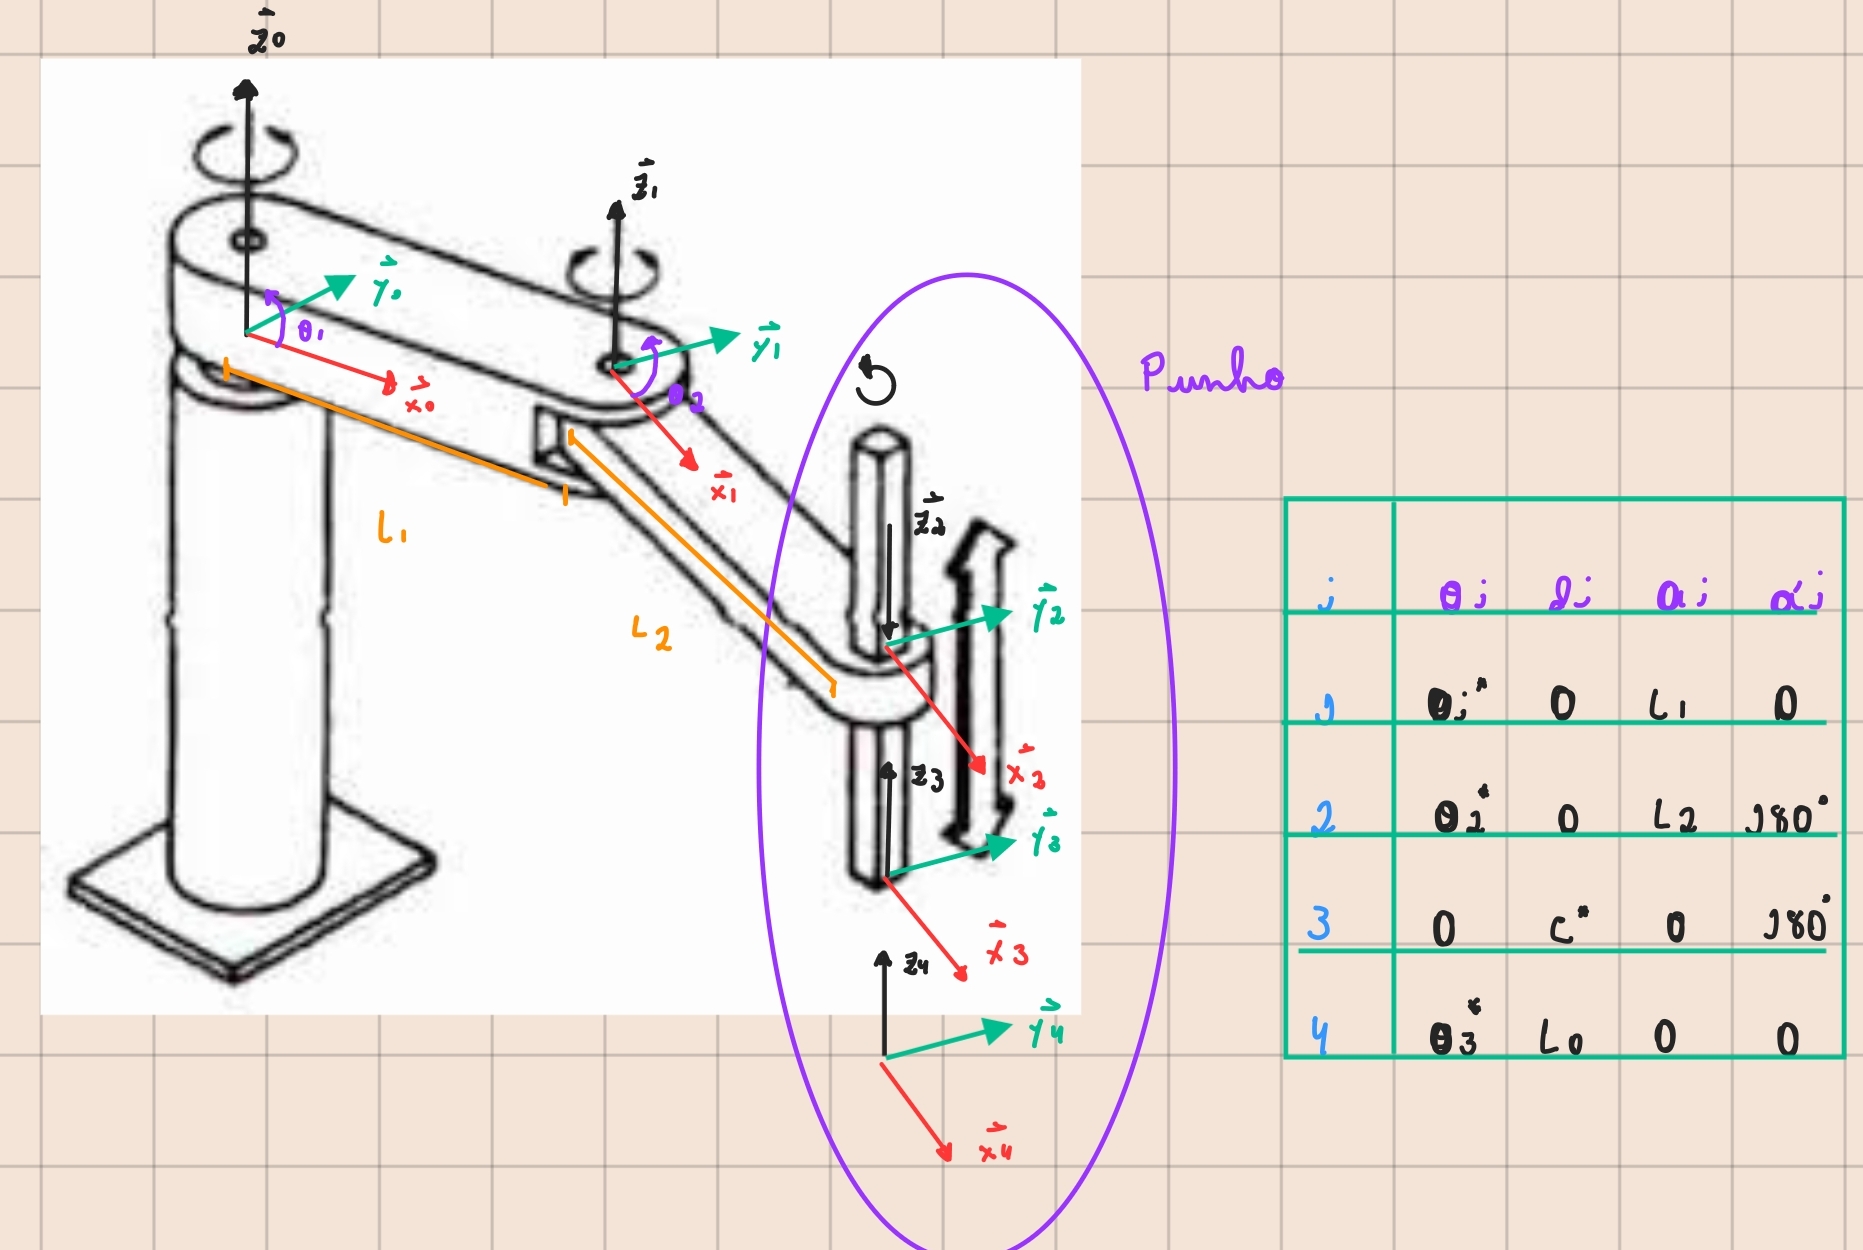 z0
z1
y0
θ1
x0
y1
θ2
x1
L1
L2
Punho
z2
y2
x2
z3
y3
x3
z4
y4
x4
j θj dj aj αj
1 θ1* 0 L1 0
2 θ2* 0 L2 180°
3 0 c* 0 180°
4 θ3* L0 0 0